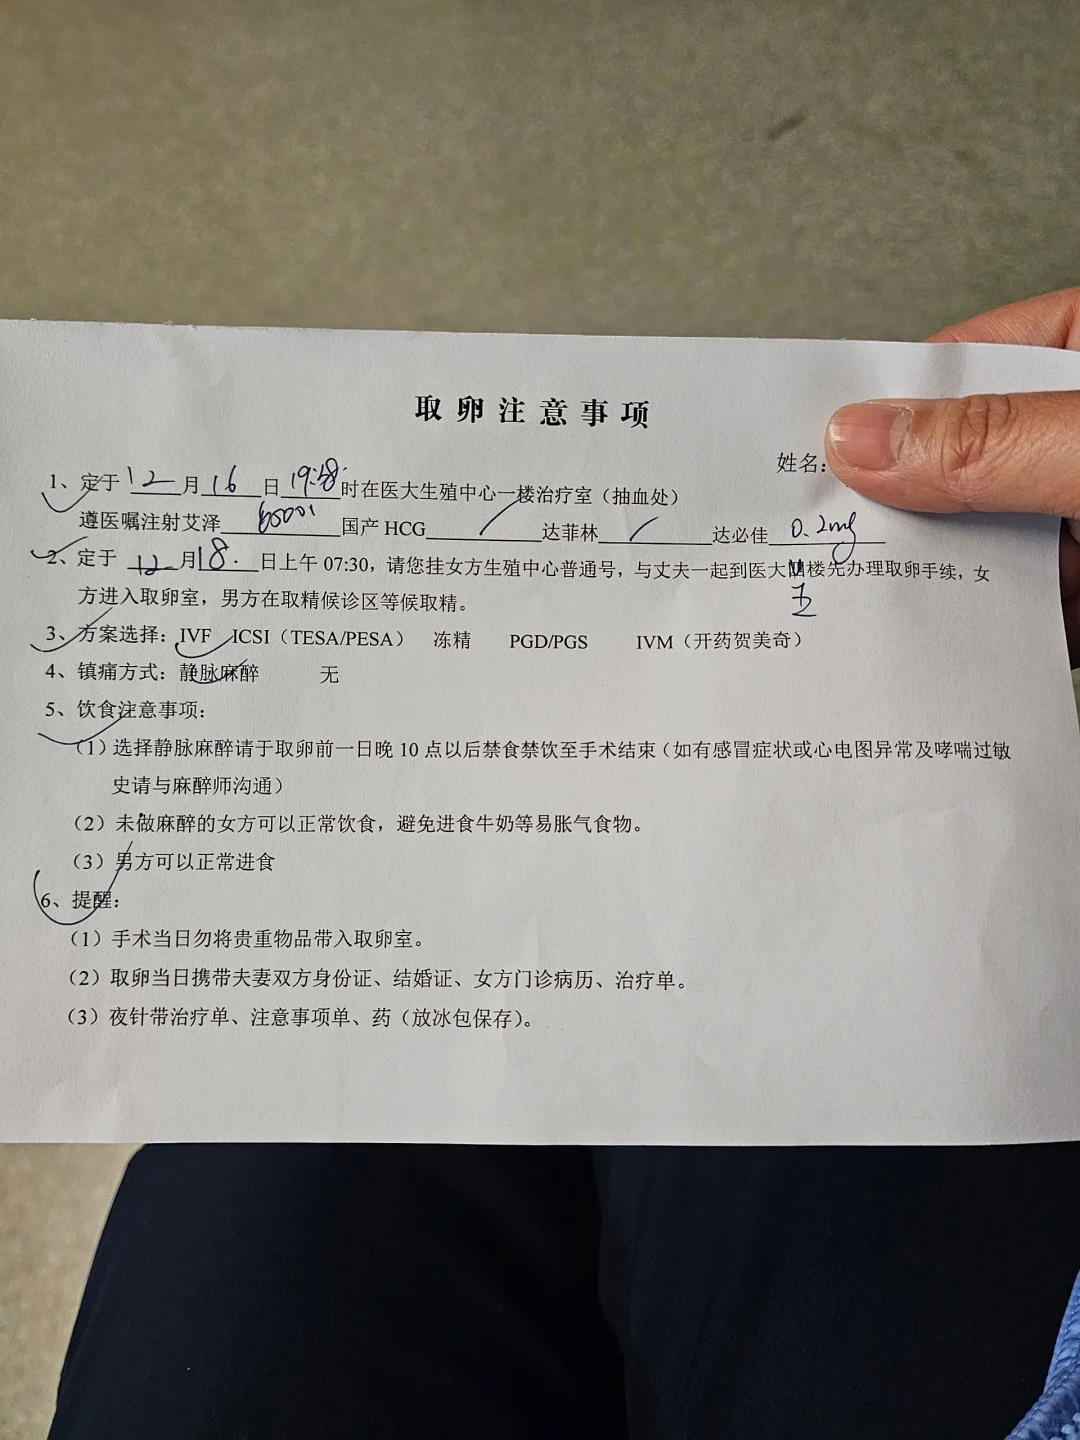 取卵注意事项
姓名:
1、定于 12 月 16 日 时在医大生殖中心一楼治疗室（抽血处）
遵医嘱注射艾泽 国产 HCG / 达菲林 / 达必佳 0.2mg
2、定于 12 月 18. 日上午 07:30，请您挂女方生殖中心普通号，与丈夫一起到医大 楼先办理取卵手续，女
五
方进入取卵室，男方在取精候诊区等候取精。
3、方案选择：IVF ICSI（TESA/PESA） 冻精 PGD/PGS IVM（开药贺美奇）
4、镇痛方式：静脉麻醉 无
5、饮食注意事项:
（1）选择静脉麻醉请于取卵前一日晚 10 点以后禁食禁饮至手术结束（如有感冒症状或心电图异常及哮喘过敏
史请与麻醉师沟通）
（2）未做麻醉的女方可以正常饮食，避免进食牛奶等易胀气食物。
（3）男方可以正常进食
6、提醒:
（1）手术当日勿将贵重物品带入取卵室。
（2）取卵当日携带夫妻双方身份证、结婚证、女方门诊病历、治疗单。
（3）夜针带治疗单、注意事项单、药（放冰包保存）。